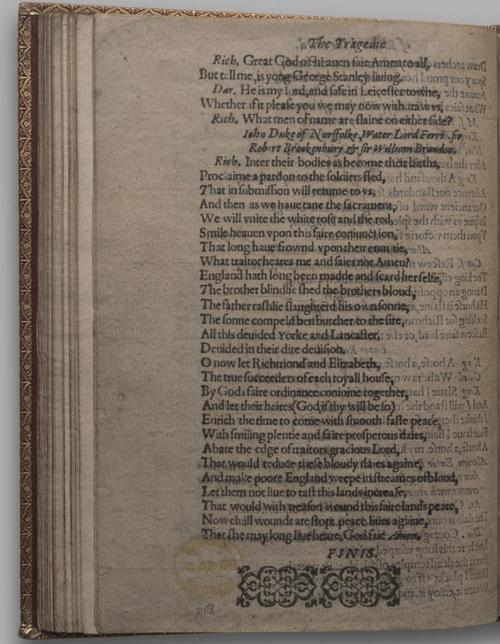 The Tragedie
Rich. Great God of heauen saie Amen to all,
But tell me, is yong George Stanley liuing.
Dar. He is my lord, and safe in Leicester towne,
Whether if it please you we may now with draw vs,
Rich. What men of name are slaine on either side?
Iohn Duke of Norffolke, Water Lord Ferris, sir
Robert Brookenbury & sir William Brandon.
Rich. Inter their bodies as become their births,
Proclaime a pardon to the soldiers fled,
That in submission will returne to vs,
And then as we haue tane the sacrament,
We will vnite the white rose and the red,
Smile heauen vpon this faire coniunction,
That long haue frownd vpon their enmitie,
What traitor heares me and saies not Amen?
England hath long been madde and scard herselfe,
The brother blindlie shed the brothers bloud,
The father rashlie slaughterd his own sonne,
The sonne compeld ben butcher to the sire,
All this deuided Yorke and Lancaster,
Deuided in their dire deuision,
O now let Richmond and Elizabeth,
The true succeeders of each royall house,
By Gods faire ordinance conioine together,
And let their heires (God if thy will be so)
Enrich the time to come with smooth faste peace,
With smiling plentie and faire prosperous daies,
Abate the edge of traitors gracious Lord,
That would reduce these bloudy daies againe,
And make poore England weepe in streames of bloud,
Let them not liue to tast this lands increase,
That would with treason wound this faire lands peace,
Now ciuill wounds are stopt, peace liues againe,
That she may long liue heare, God saie Amen.
FINIS.